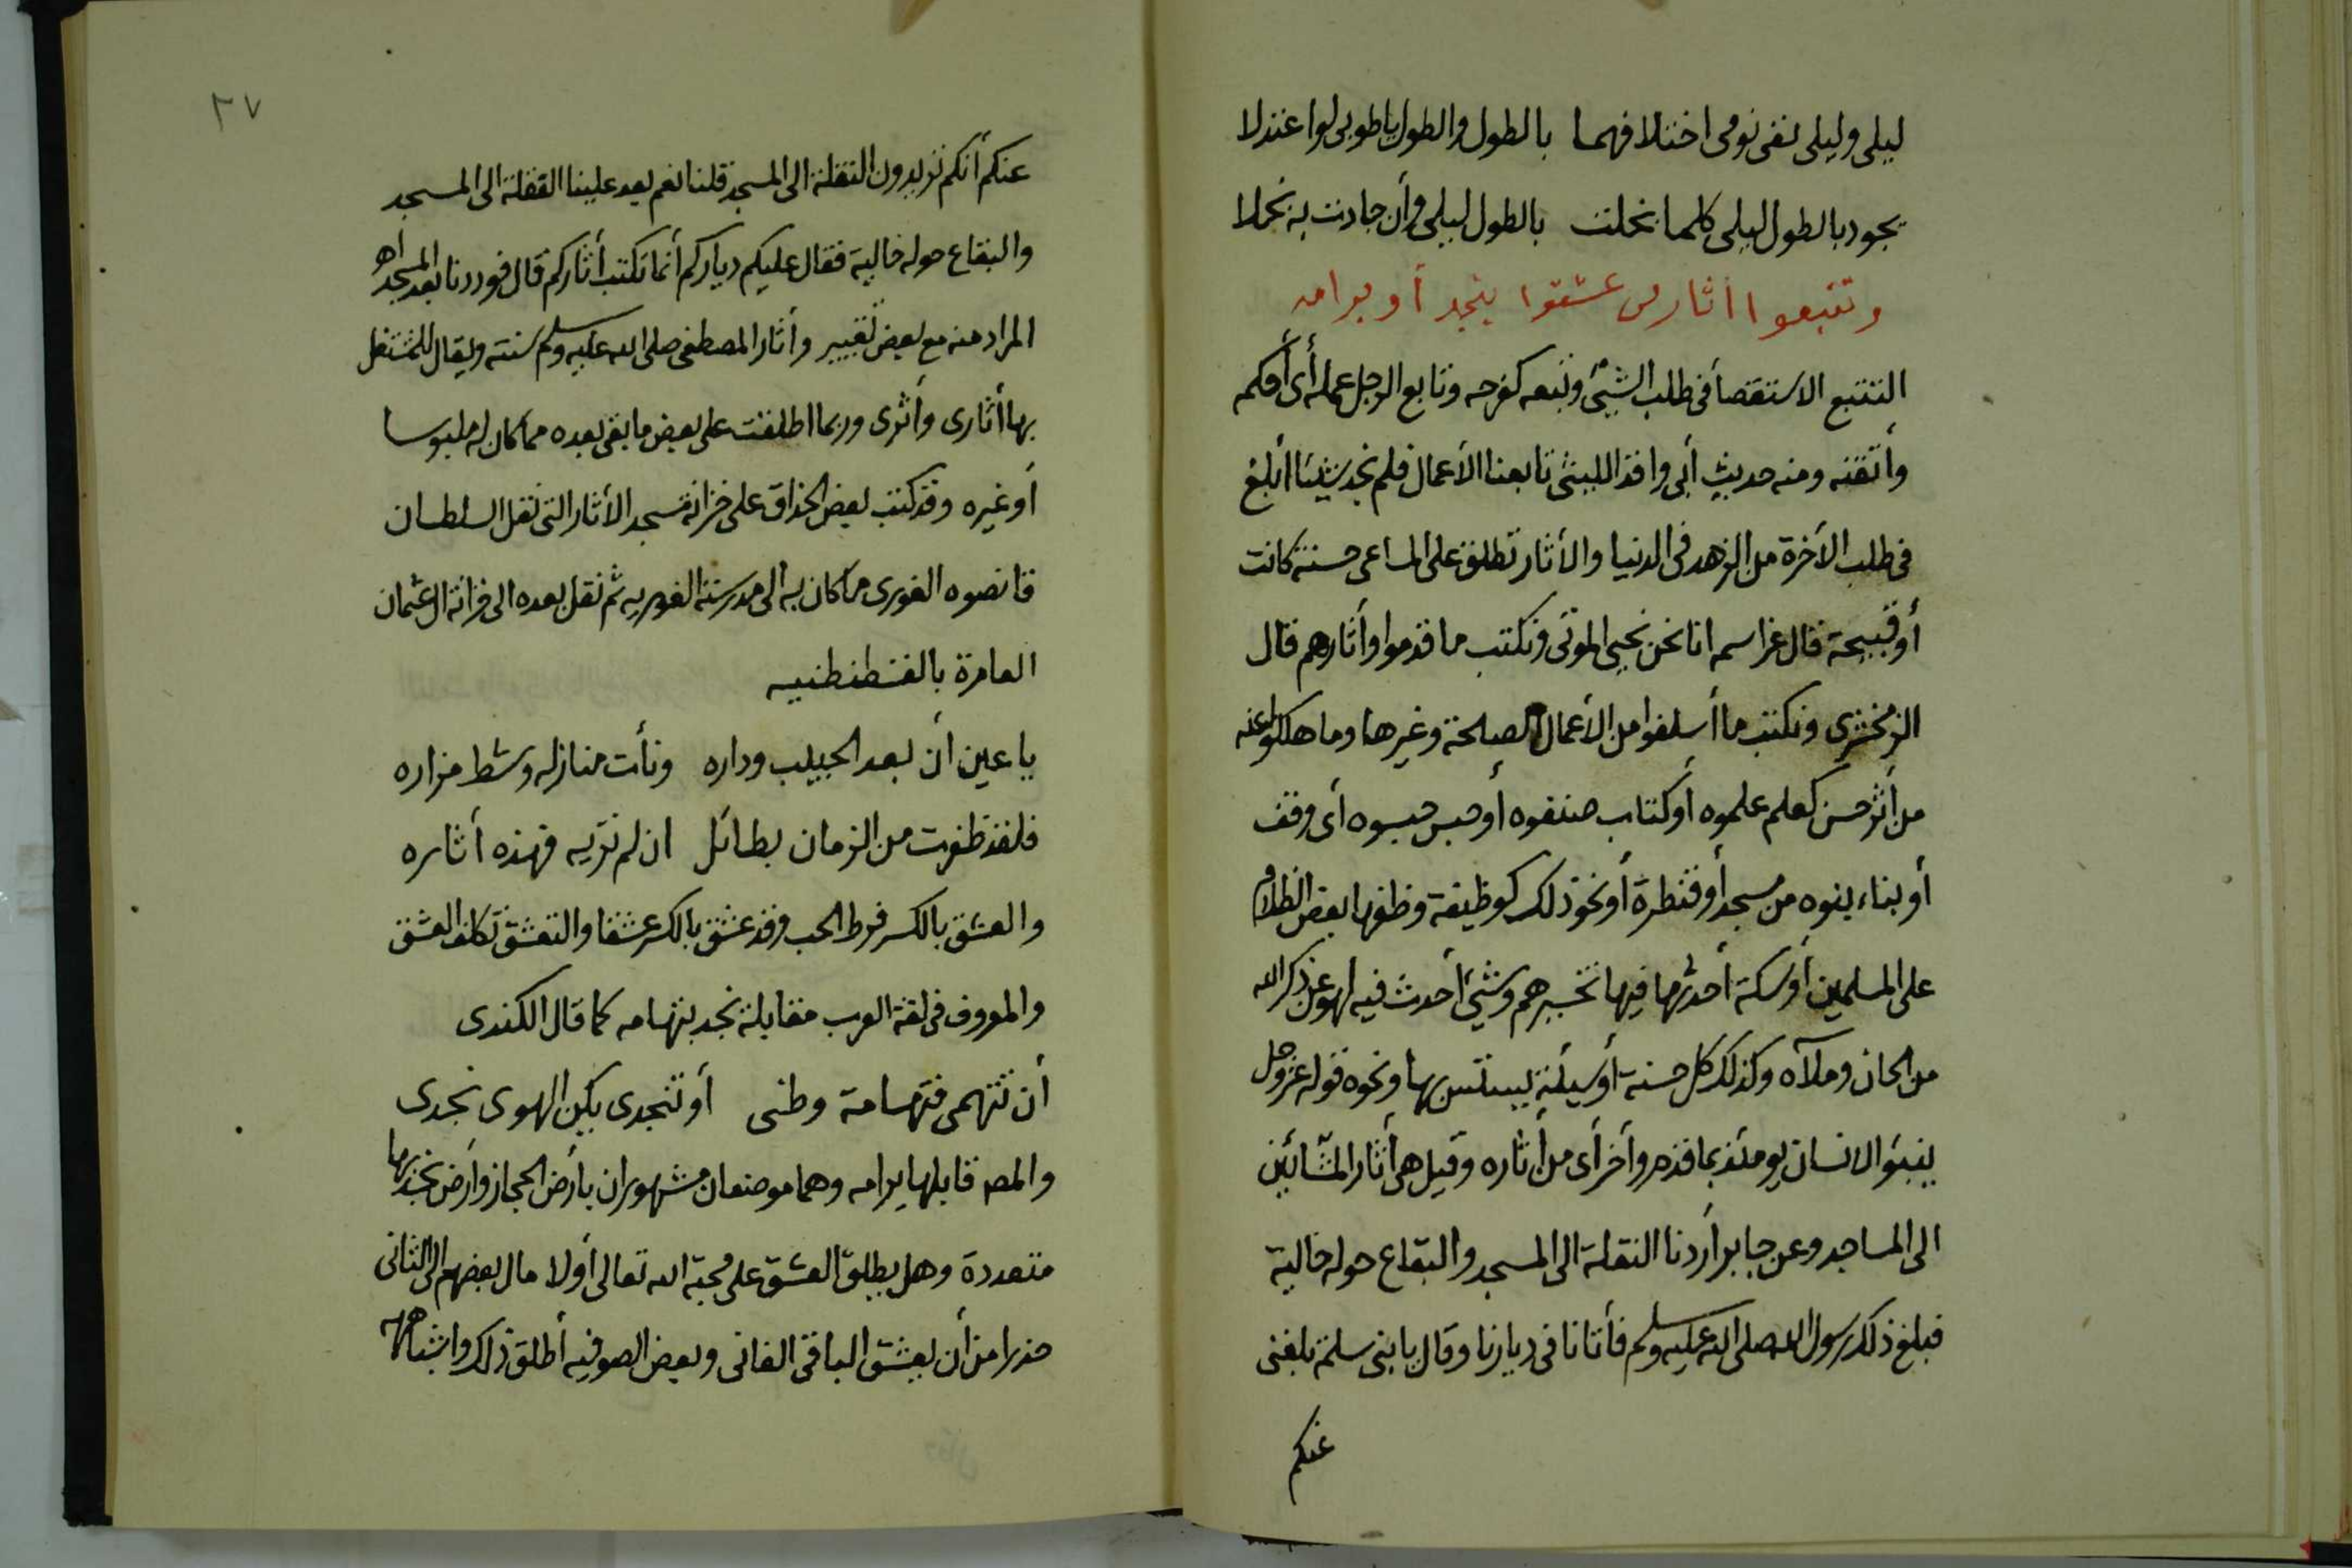 ليلى وليلى نفى نومى اختلافهما بالطول والطول ياطوبى لوا عندلا
يجود بالطول ليلى كلما بخلت بالطول ليلى وأن جادت به بخلا
وتتبعوا أثار من عشقوا بنجد أو برامه
التتبع الاستقصأ فى طلب الشيئ وتبعه كفرحه وتابع الرجل عمله أى أحكمه
وأتقنه ومنه حديث أبى واقد الليثى تابعنا الأعمال فلم نجد شيئا أبلغ
فى طلب الأخرة من الزهد فى الدنيا والأثار تطلق على المساعى حسنة كانت
أو قبيحة قال عز اسمه انا نحن نحيى الموتى ونكتب ما قدموا وأثارهم قال
الزمخشرى ونكتب ما أسلفوا من الأعمال الصلحة وغيرها وما هلكوا عنه
من أثر حسن كعلم علموه أو كتاب صنفوه أو حبس حبسوه أى وقف
أو بناء بنوه من مسجد أو قنطرة أو نحو ذلك كوظيفة وظفها بعض الظلام
على المسلمين أو سكة أحدثها فيها تخسيرهم وشيئ أحدث فيه لهو عن ذكر الله
من الحان وملآه وكذلك كل حسنة أو سيئة يستنن بها ونحوه قوله عز وجل
ينبئوا الانسان يومئذ بما قدم وأخر أى من أثاره وقيل هى أثار المشّائين
الى المساجد وعن جابر أردنا النقلة الى المسجد والبقاع حوله خالية
فبلغ ذلك رسول الله صلى الله عليه وسلم فأتانا فى ديارنا وقال يا بنى سلمة بلغنى
عنكم
٢٧
عنكم أنكم تريدون النقلة الى المسجد قلنا نعم بعد علينا النقلة الى المسجد
والبقاع حوله خالية فقال عليكم دياركم أنما تكتب أثاركم قال فوددنا بعد المسجد اهـ
المراد منه مع بعض تغيير وأثار المصطفى صلى الله عليه وسلم سنته ويقال للمشتغل
بها أثارى وأثرى وربما اطلقت على بعض ما بقى بعده مما كان له ملبوسا
أو غيره وقد كتب بعض الحذاق على خزانة مسجد الأثار التى نقل السلطان
قانصوه الغورى ما كان به الى مدرسته الغوريه ثم نقل بعده الى خزانة ال عثمان
العامرة بالقسطنطنيه
يا عين أن بعد الحبيب وداره ونأت منازله وشط مزاره
فلقد ظفرت من الزمان بطائل ان لم تريه فهذه أثاره
والعشق بالكسر فرط الحب وقد عشق بالكسر عشقا والتعشق تكلف العشق
والمعروف فى لغة العرب مقابلة نجد بتهامه كما قال الكندى
أن تتهمى فتهامة وطنى أو تنجدى يكن الهوى نجدى
والمصـ قابلها برامه وهما موضعان مشهوران بأرض الحجاز وأرض نجد بها
متعددة وهل يطلق العشق على محبة الله تعالى أولا مال بعضهم الى الثانى
حذرا من أن يعشق الباقى الفانى وبعض الصوفيه أطلق ذلك واشباهه